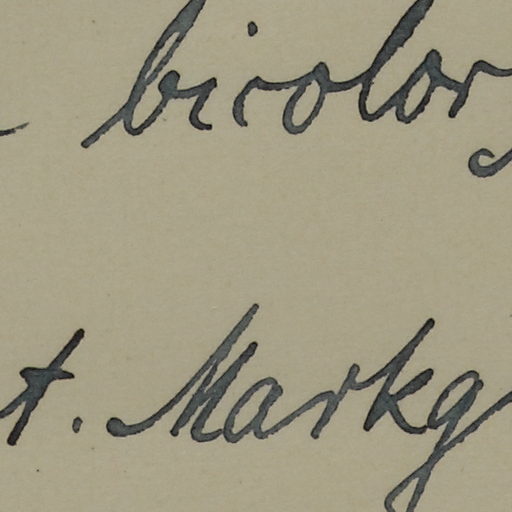 bicolor
t. Markg